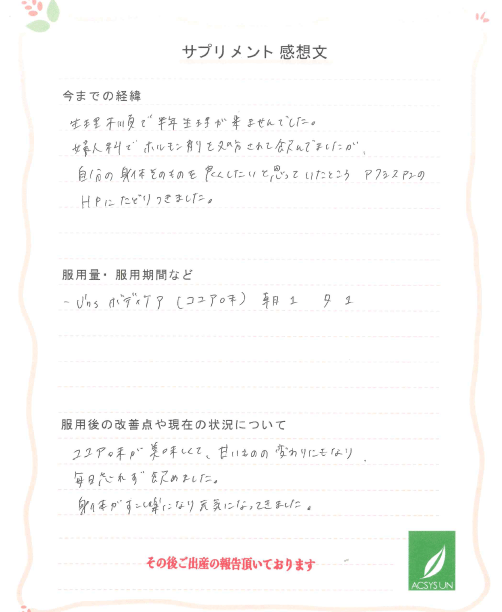 サプリメント 感想文
今までの経緯
生理不順で半年生理が来ませんでした。
婦人科でホルモン剤を処方されて飲んでましたが、
自分の身体そのものを良くしたいと思っていたところ アクシスアンの
HPにたどりつきました。
服用量・服用期間など
ボディケア (ココア味) 朝1 夕1
服用後の改善点や現在の状況について
ココア味が美味しくて、甘いものの変わりにもなり、
毎日忘れず飲めました。
身体がすごく楽になり元気になってきました。
その後ご出産の報告頂いております
ACSYSUN